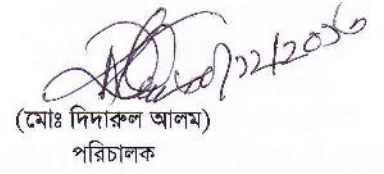 (মোঃ দিদারুল আলম)
পরিচালক